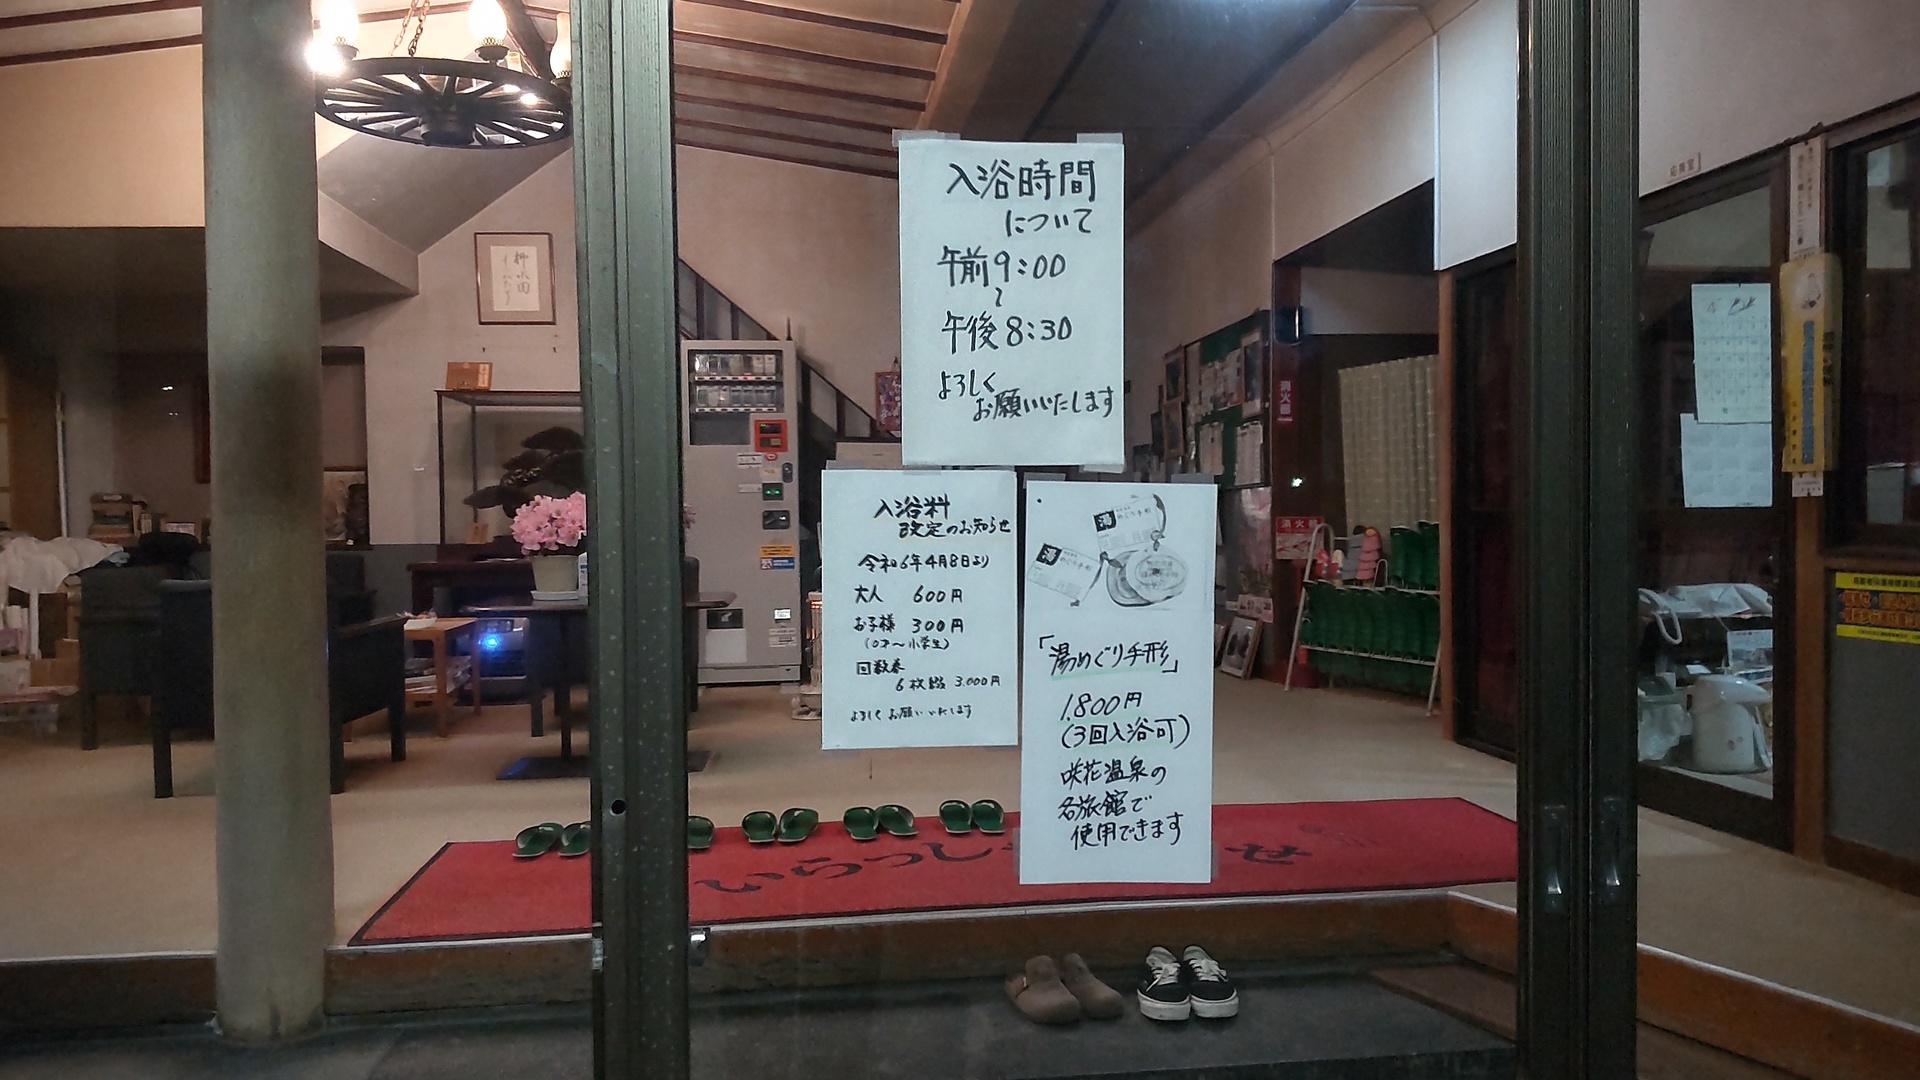 入浴時間
について
午前9:00
～
午後8:30
よろしく
お願いいたします
入浴料
改定のお知らせ
令和6年4月8日より
大人 600円
お子様 300円
(0才～小学生)
回数券
6枚綴 3.000円
よろしくお願いいたします
湯 めぐり手形
湯 めぐり手形
「湯めぐり手形」
1.800円
(3回入浴可)
咲花温泉の
各旅館で
使用できます
いらっし
せ
消火器
消火器